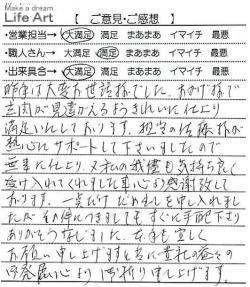 Make a dream
Life Art 【 ご意見・ご感想 】
・営業担当→ 大満足 満足 まあまあ イマイチ 最悪
・職人さん→ 大満足 満足 まあまあ イマイチ 最悪
・出来具合→ 大満足 満足 まあまあ イマイチ 最悪
昨年は大変お世話様でした。おかげ様で
玄関が見違えるようきれいに仕上り
満足いたしております。担当の佐藤様が
熱心にサポートして下さいましたので
無事に仕上り 又私の我儘も気持ち良く
受け入れてくれました事心より感謝致して
おります。一点だけ だめ出しを申し入れまし
たが その件につきましても、すぐに手配下さり
ありがとうございました。今年も宜しく
お願い申し上げますと共に貴社の益々の
御発展心よりお祈り申し上げます。